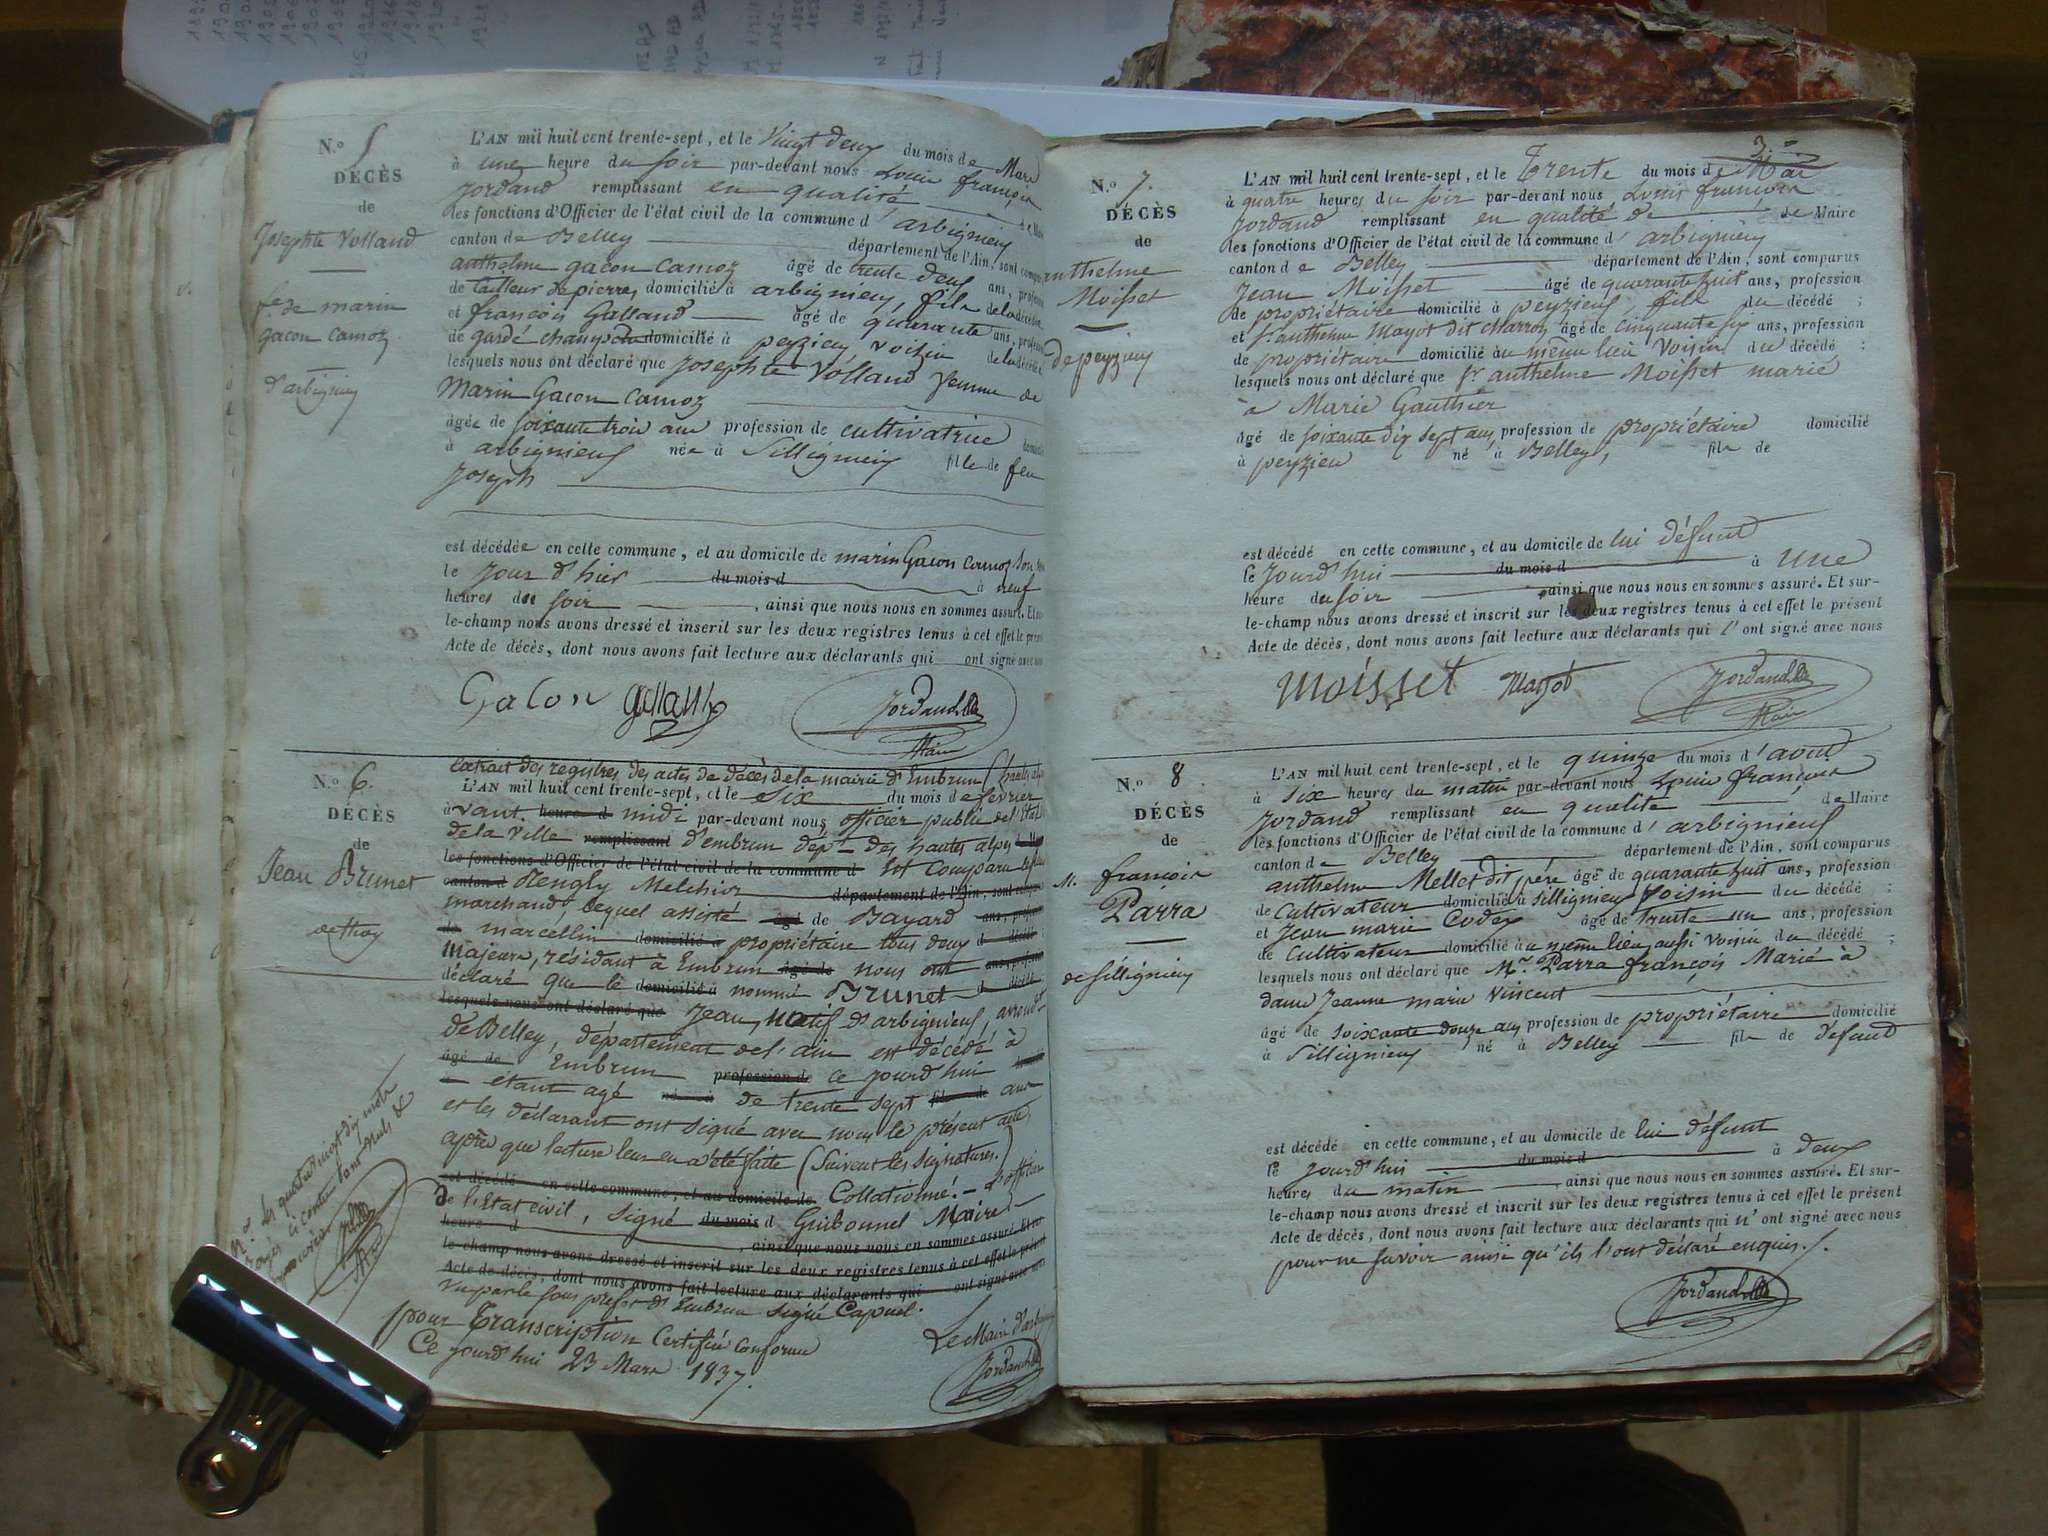 N.º 5
DÉCÈS
de
Josephte Volland
fe. de marin
gacon camoz
d'arbignieu
L'AN mil huit cent trente-sept, et le Vingt deux du mois de Mars
à une heure du soir par-devant nous Louis françois
Jordand remplissant en qualité de Maire
les fonctions d'Officier de l'état civil de la commune d'arbignieu
canton de Belley département de l'Ain, sont comparus
anthelme gacon camoz âgé de trente deux ans, profession
de tailleur de pierres domicilié à arbignieu, fils de la décédée
et françois Galland âgé de quarante ans, profession
de garde champetre domicilié à peyzieu voisin de la décédée
lesquels nous ont déclaré que Josephte Volland femme de
Marin Gacon Camoz
âgée de soixante trois ans profession de cultivatrice domiciliée
à arbignieu née à Sillignieu fille de feu
Joseph
est décédée en cette commune, et au domicile de marin Gacon camoz son
le jour d'hier du mois d à neuf
heures du soir , ainsi que nous nous en sommes assuré. Et sur-
le-champ nous avons dressé et inscrit sur les deux registres tenus à cet effet le présent
Acte de décès, dont nous avons fait lecture aux déclarants qui ont signé avec nous
Gacon galland Jordand
Maire
N.º 6.
DÉCÈS
de
Jean Brunet
de thoy
Extrait des registres des actes de décès de la mairie d'Embrun (hautes alpes
L'AN mil huit cent trente-sept, et le Six du mois de février
àvant heure d midi par-devant nous officier public de l'Etat
de la Ville remplissant d'embrun dépt. des hautes alpes
les fonctions d'Officier de l'état civil de la commune d Est comparu le
canton d Rengly Melchior département de l'Ain, sont comparus
marchand, lequel assisté âgé de Bayard ans, profession
de marcellin domicilié à propriétaire tous deux d décédé
Majeurs, résidant à Embrun âgé de nous ont ans, profession
déclaré que le domicilié à nommé Brunet d décédé
lesquels nous ont déclaré que Jean, natif d'arbignieu, arrondt
de Belley, département de l'ain est décédé à
âgé de Embrun profession de ce jourd'hui
étant agé né à de trente sept fils de ans
et les déclarant ont signé avec nous le présent acte
après que lecture leur en a été faite (Suivent les signatures.)
est décédé en cette commune, et au domicile de Collationné. - L'officier
de l'Etat civil, signé du mois d Guibonnel Maire
heure d , ainsi que nous nous en sommes assuré. Et sur-
le-champ nous avons dressé et inscrit sur les deux registres tenus à cet effet le présent
Acte de décès, dont nous avons fait lecture aux déclarants qui ont signé avec nous
Vu par le sous préfet d'Embrun signé Capuel.
pour Transcription Certifiée conforme
Ce jourd'hui 23 Mars 1837.
Le Maire d'arbignieu
Jordand
Les quatrevingt dix mots
rayés ci contre sont nuls &
3.
N.º 7.
DÉCÈS
de
anthelme
Moisset
de peyzieu
L'AN mil huit cent trente-sept, et le Trente du mois de Mai
à quatre heures du soir par-devant nous Louis françois
Jordand remplissant en qualité de de Maire
les fonctions d'Officier de l'état civil de la commune d'arbignieu
canton de Belley département de l'Ain, sont comparus
Jean Moisset âgé de quarante huit ans, profession
de propriétaire domicilié à peyzieu, fils du décédé ;
et sr. anthelme Mayot dit charroz âgé de cinquante six ans, profession
de propriétaire domicilié au même lieu voisin du décédé ;
lesquels nous ont déclaré que sr anthelme Moisset marié
à Marie Gauthier
âgé de soixante dix sept ans, profession de propriétaire domicilié
à peyzieu né à Belley, fils de
est décédé en cette commune, et au domicile de lui défunt
le jourd'hui du mois d à une
heure du soir , ainsi que nous nous en sommes assuré. Et sur-
le-champ nous avons dressé et inscrit sur les deux registres tenus à cet effet le présent
Acte de décès, dont nous avons fait lecture aux déclarants qui l'ont signé avec nous
moisset mayot Jordand
Maire
N.º 8
DÉCÈS
de
M. françois
Parra
de Sillignieu
L'AN mil huit cent trente-sept, et le quinze du mois d'aout
à six heures du matin par-devant nous Louis françois
Jordand remplissant en qualité de Maire
les fonctions d'Officier de l'état civil de la commune d'arbignieu
canton de Belley département de l'Ain, sont comparus
anthelme Mellet dit père âgé de quarante huit ans, profession
de Cultivateur domicilié à Sillignieu voisin du décédé ;
et Jean marie Codex âgé de trente un ans, profession
de Cultivateur domicilié au même lieu aussi voisin du décédé ;
lesquels nous ont déclaré que Mr. Parra françois Marié à
dame Jeanne marie Vincent
âgé de soixante douze ans profession de propriétaire domicilié
à Sillignieu né à Belley fils de defunt
est décédé en cette commune, et au domicile de lui défunt
le jourd'hui du mois d à deux
heures du matin , ainsi que nous nous en sommes assuré. Et sur-
le-champ nous avons dressé et inscrit sur les deux registres tenus à cet effet le présent
Acte de décès, dont nous avons fait lecture aux déclarants qui n'ont signé avec nous
pour ne savoir ainsi qu'ils l'ont déclaré enquis./.
Jordand